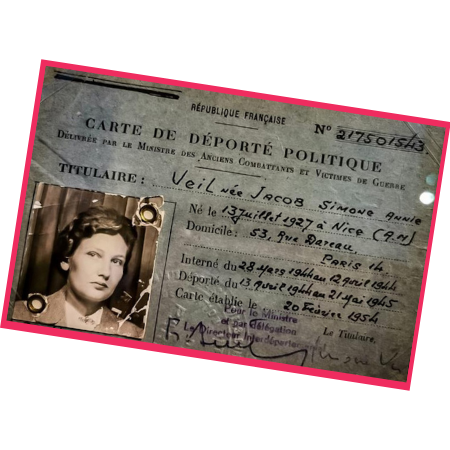 RÉPUBLIQUE FRANÇAISE
N° 217501543
CARTE DE DÉPORTÉ POLITIQUE
DÉLIVRÉE PAR LE MINISTRE DES ANCIENS COMBATTANTS ET VICTIMES DE GUERRE
TITULAIRE : VEIL née JACOB SIMONE ANNIE
Né le 13 Juillet 1927 à NICE (A.M)
Domicile : 53, Rue Dareau
PARIS 14
Interné du 28 Mars 1944 au 12 Avril 1944
Déporté du 13 Avril 1944 au 21 Mai 1945
Carte établie le 20 Février 1954
Pour le Ministre
et par délégation
Le Directeur Interdépartemental
Le Titulaire,